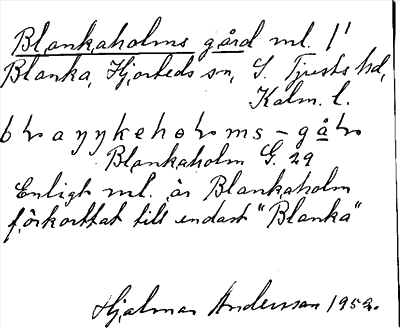 Blankaholms gård ml. 1'
Blanka, Hjorteds sn, S. Tjusts hd,
Kalm. l.
Blankaholm G. 29
Enligt ml. är Blankaholm
förkortat till endast "Blanka"
Hjalmar Andersson 1952.